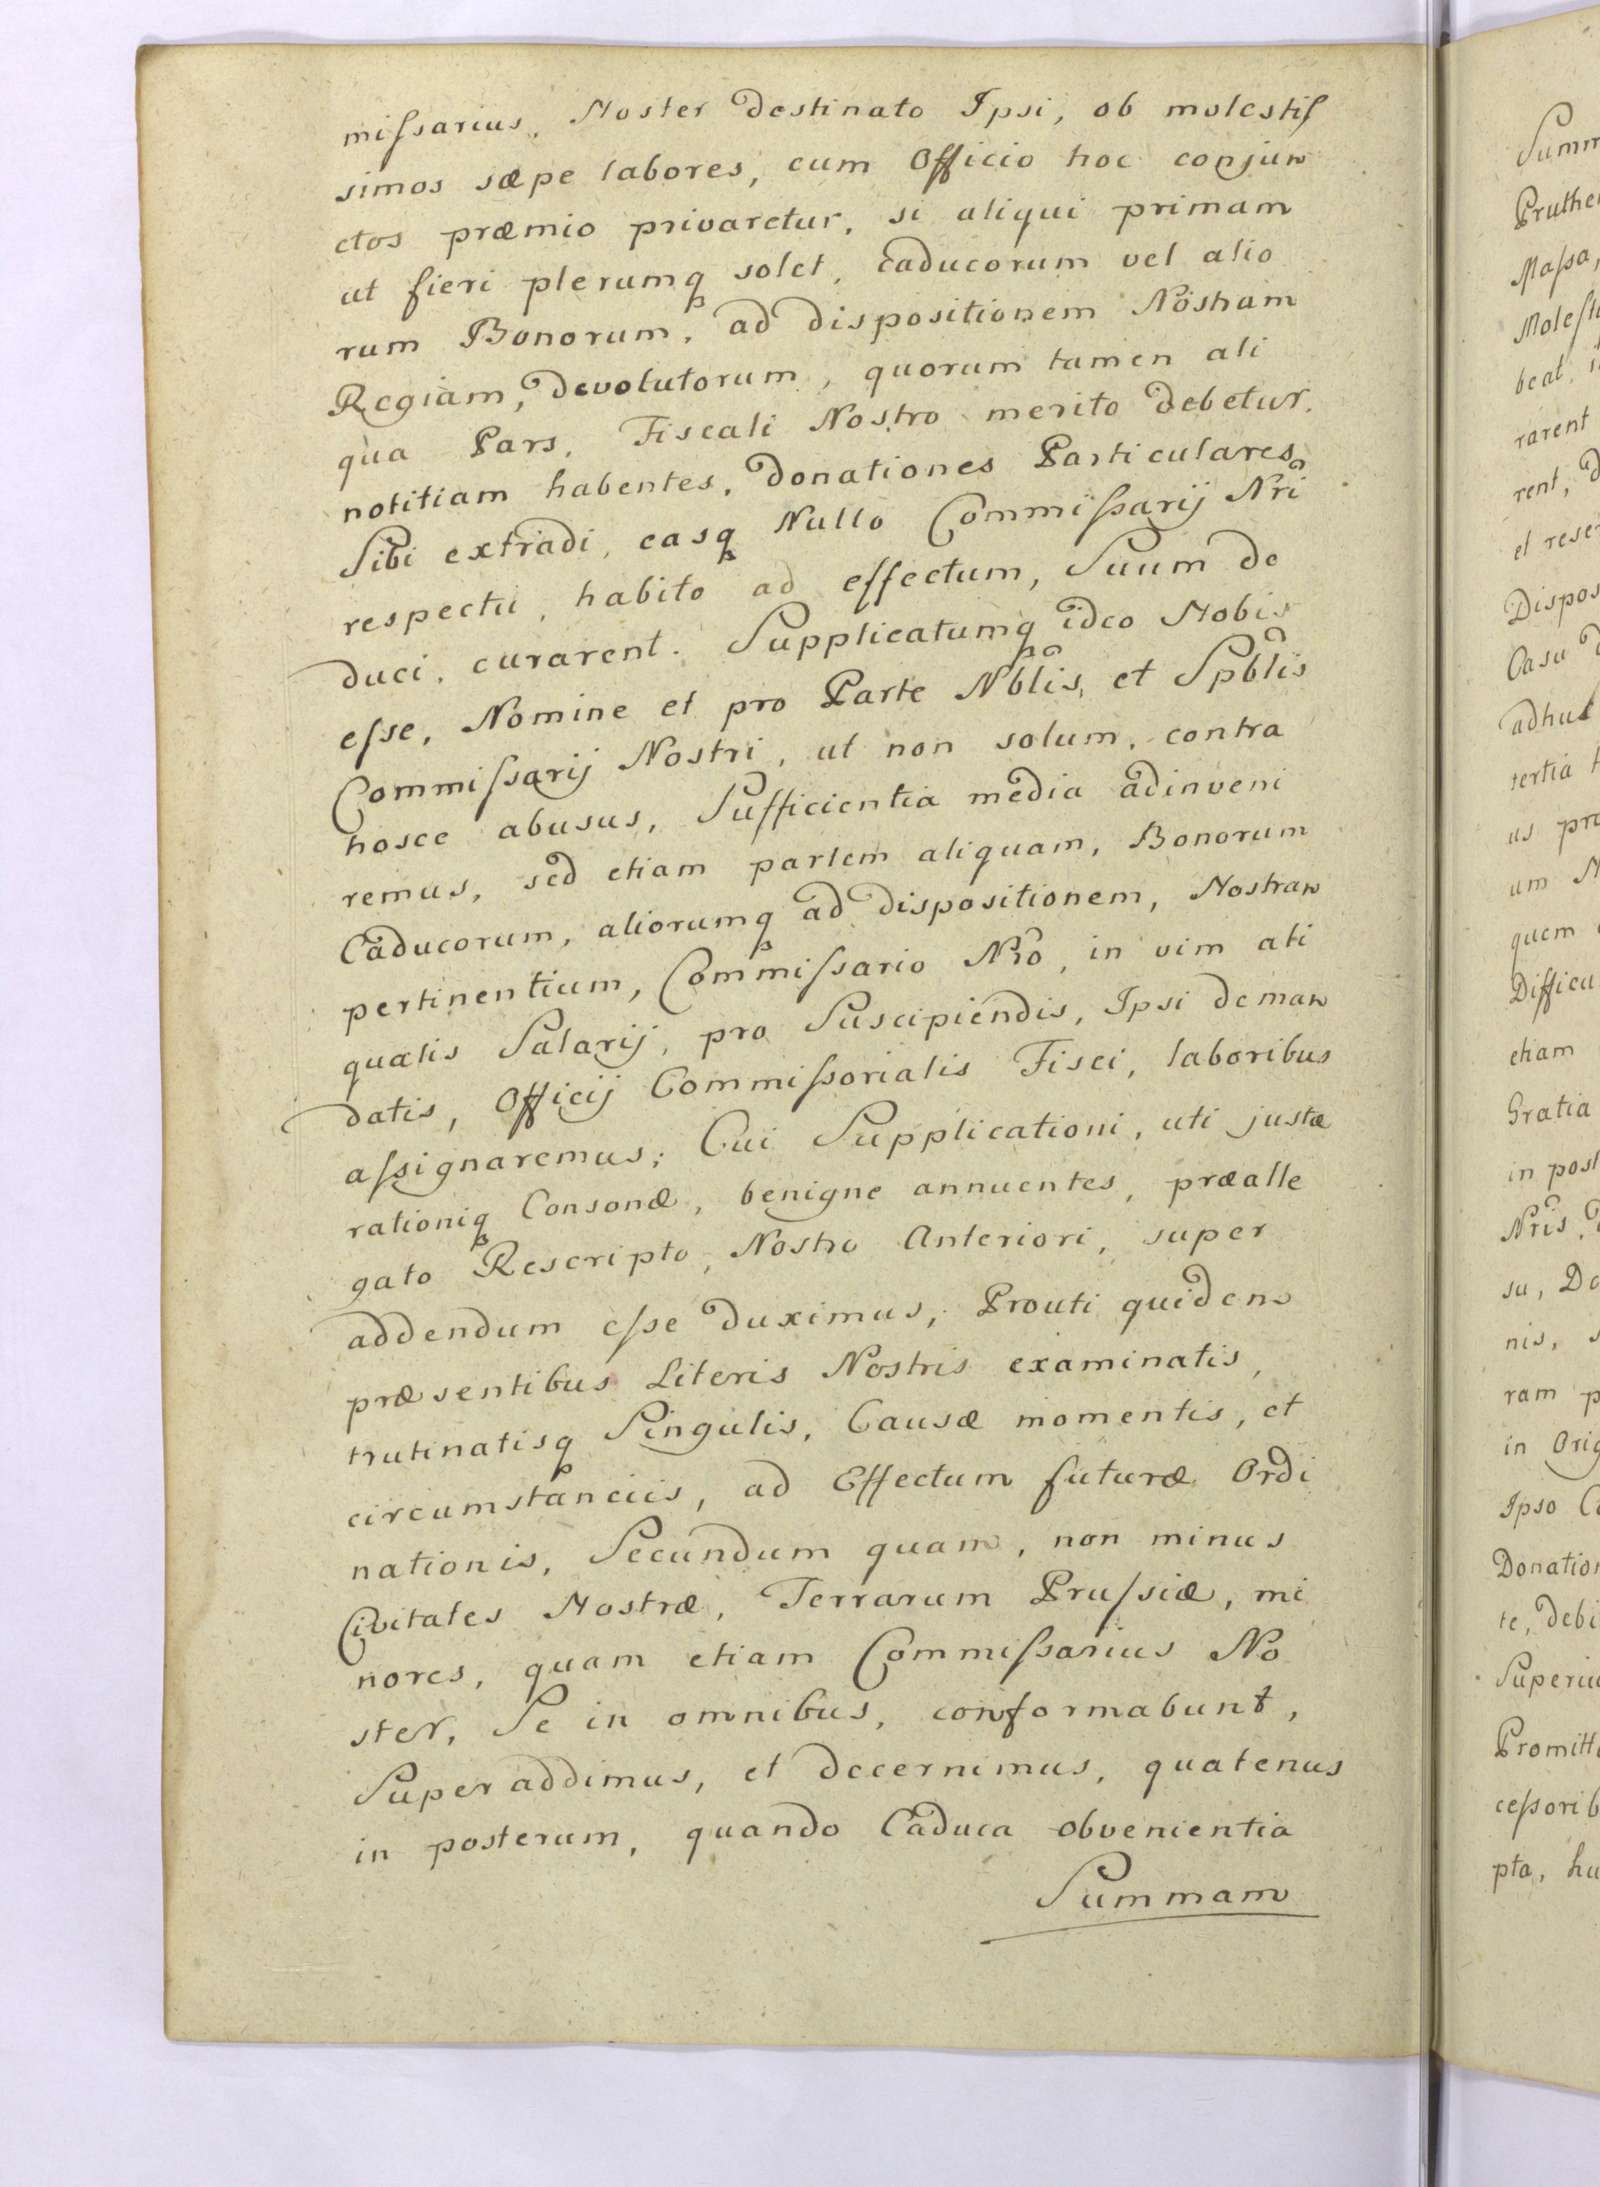 miſsarius, Noster destinato Ipsi, ob molestiſ
simos sæpe labores, cum Officio hoc conjun
ctos præmio privaretur, si aliqui primam
ut fieri plerumq solet, caducorum vel alio
rum Bonorum, ad dispositionem Nostram
Regiam, devolutorum, quorum tamen ali
qua Pars, Fiscali Nostro merito debetur.
notitiam habentes, donationes Particulares
Sibi extradi, easq Nullo Commiſsarij Nri
respectu, habito ad effectum, Suum de
duci, curarent. Supplicatumq ideo Nobis
eſse, Nomine et pro Parte Nblis, et Spblis
Commiſsarij Nostri, ut non solum, contra
hosce abusus, Sufficientia media adinveni
remus, sed etiam partem aliquam, Bonorum
Caducorum, aliorumq ad dispositionem, Nostram
pertinentium, Commiſsario Nro, in vim ali
qualis Salarij, pro Suscipiendis, Ipsi deman
datis, Officij Commiſsorialis Fisci, laboribus
aſsignaremus; Cui Supplicationi, uti justæ
rationiq Consonæ, benigne annuentes, præalle
gato Rescripto, Nostro Anteriori, super
addendum eſse duximus, Prouti quidem
præsentibus Literis Nostris examinatis,
trutinatisq Singulis, Causæ momentis, et
circumstanciis, ad Effectum futuræ Ordi
nationis, Secundum quam, non minus
Civitates Nostræ, Terrarum Pruſsiæ, mi
nores, quam etiam Commiſsarius No
ster, Se in omnibus, conformabunt,
Superaddimus, et decernimus, quatenus
in posterum, quando Caduca obvenientia
Summam
Summ
Pruthe
Maſsa,
Moleſt
beat,
rarent
rent,
et rese
Dispos
Casu
adhuc
tertia
us
um
quem
Difficu
etiam
Gratia
in post
Nris,
su,
nis,
ram
in Orig
Ipso
Donation
te, debi
Superiu
Promitt
ceſsorib
pta, hu